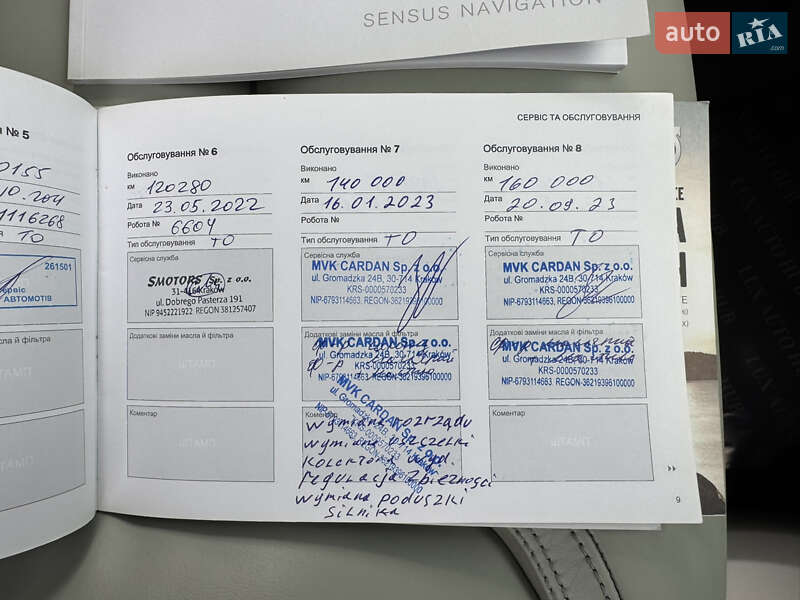 SENSUS NAVIGATION
auto RIA .com
СЕРВІС ТА ОБСЛУГОВУВАННЯ
№ 5
0155
1116268
ТО
261501
сервіс
АВТОМОТІВ
масла й фільтра
ШТАМП
ШТАМП
Обслуговування № 6
Виконано
км 120280
Дата 23.05.2022
Робота № 6604
Тип обслуговування ТО
Сервісна служба
SMOTORS Sp. z o.o.
31-416 Kraków
ul. Dobrego Pasterza 191
NIP 9452221922 REGON 381257407
Додаткові заміни масла й фільтра
ШТАМП
Коментар
ШТАМП
Обслуговування № 7
Виконано
км 140 000
Дата 16.01.2023
Робота №
Тип обслуговування ТО
Сервісна служба
MVK CARDAN Sp. z o.o.
ul. Gromadzka 24B, 30-714 Kraków
KRS-0000570233
NIP-6793114663, REGON-36219396100000
Додаткові заміни масла й фільтра
MVK CARDAN Sp. z o.o.
ul. Gromadzka 24B, 30-714 Kraków
KRS-0000570233
NIP-6793114663, REGON-36219396100000
Коментар
MVK CARDAN Sp. z o.o.
ul. Gromadzka 24B, 30-714 Kraków
KRS-0000570233
NIP-6793114663, REGON-36219396100000
wymiana rozrządu
wymiana uszczelki
kolektora
regulacja zbieżności
wymiana poduszki
silnika
Обслуговування № 8
Виконано
км 160 000
Дата 20.09.23
Робота №
Тип обслуговування ТО
Сервісна служба
MVK CARDAN Sp. z o.o.
ul. Gromadzka 24B, 30-714 Kraków
KRS-0000570233
NIP-6793114663, REGON-36219396100000
Додаткові заміни масла й фільтра
MVK CARDAN Sp. z o.o.
ul. Gromadzka 24B, 30-714 Kraków
KRS-0000570233
NIP-6793114663, REGON-36219396100000
Коментар
ШТАМП
9